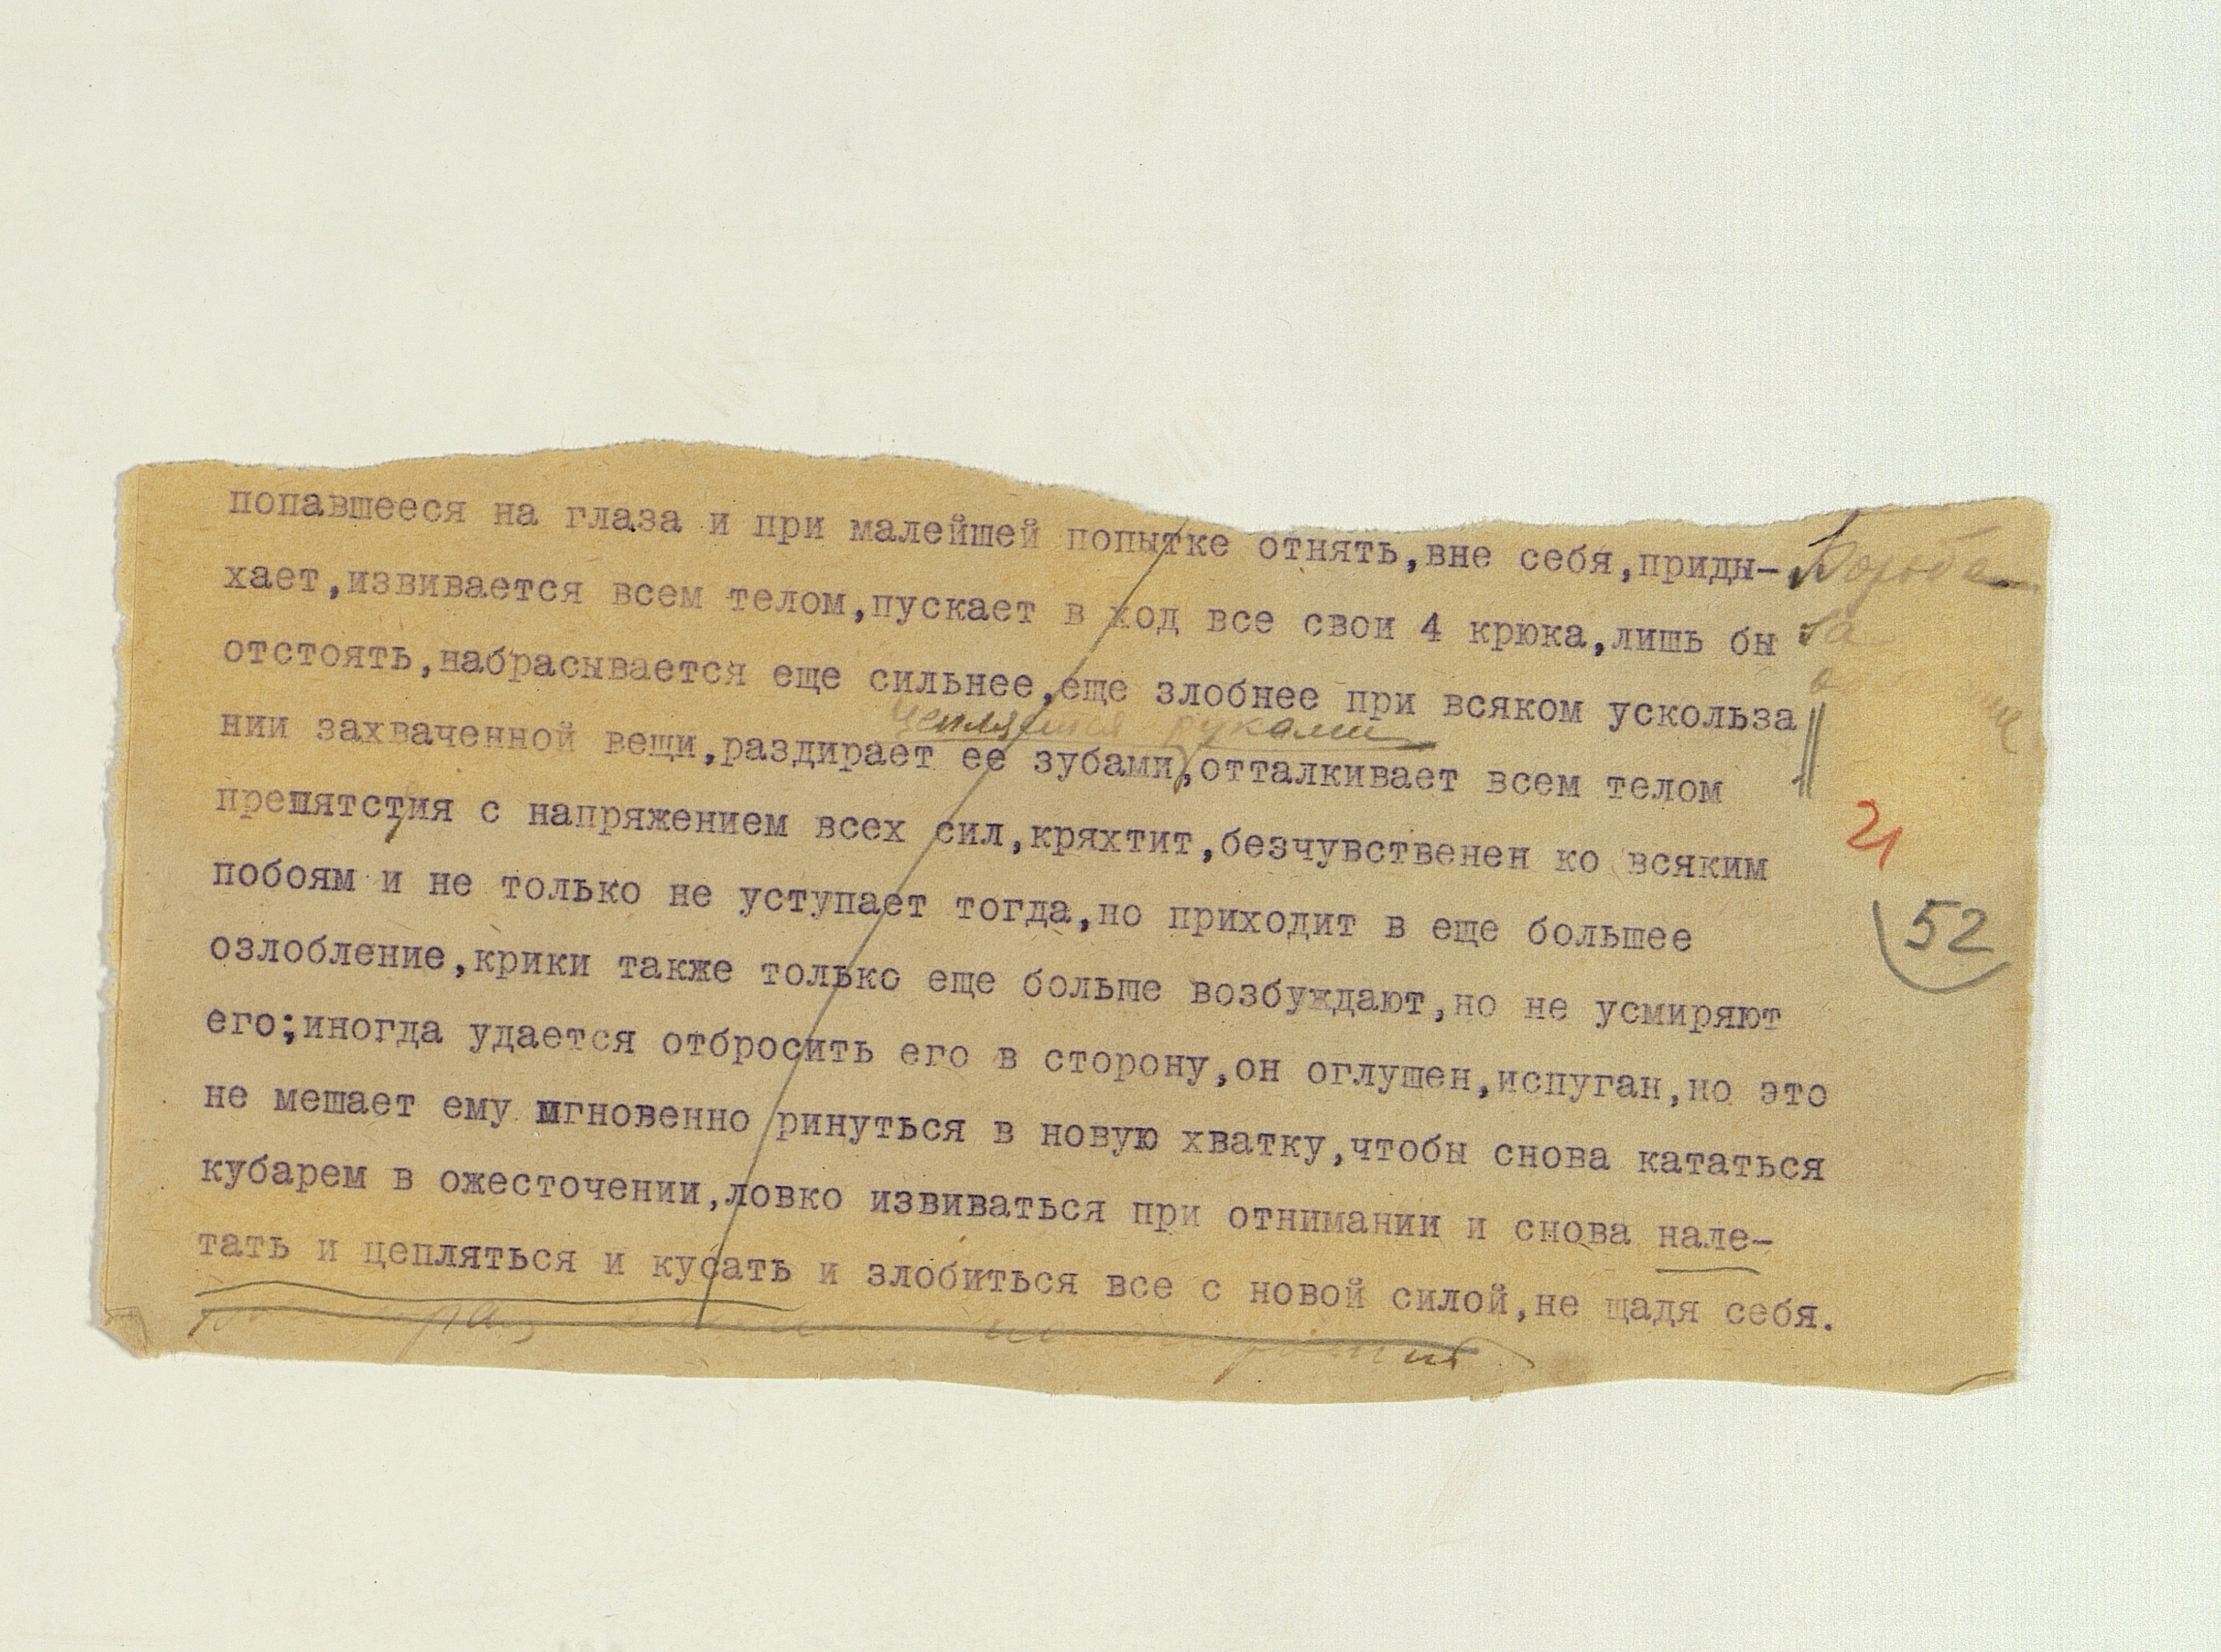 попавшееся на глаза и при малейшей попытке отнять,вне себя,приды- Борьба
хает,извивается всем телом,пускает в ход все свои 4 крюка,лишь бы за
отстоять,набрасывается еще сильнее,еще злобнее при всяком ускольза
цепляется руками
нии захваченной вещи,раздирает ее зубами,отталкивает всем телом
препятствия с напряжением всех сил,кряхтит,безчувственен ко всяким
21
побоям и не только не уступает тогда,но приходит в еще большее
52
озлобление,крики также только еще больше возбуждают,но не усмиряют
его;иногда удается отбросить его в сторону,он оглушен,испуган,но это
не мешает ему мгновенно ринуться в новую хватку,чтобы снова кататься
кубарем в ожесточении,ловко извиваться при отнимании и снова нале-
тать и цепляться и кусать и злобиться все с новой силой,не щадя себя.